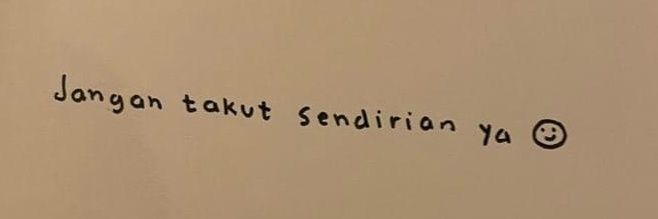 Jangan takut sendirian ya ☺